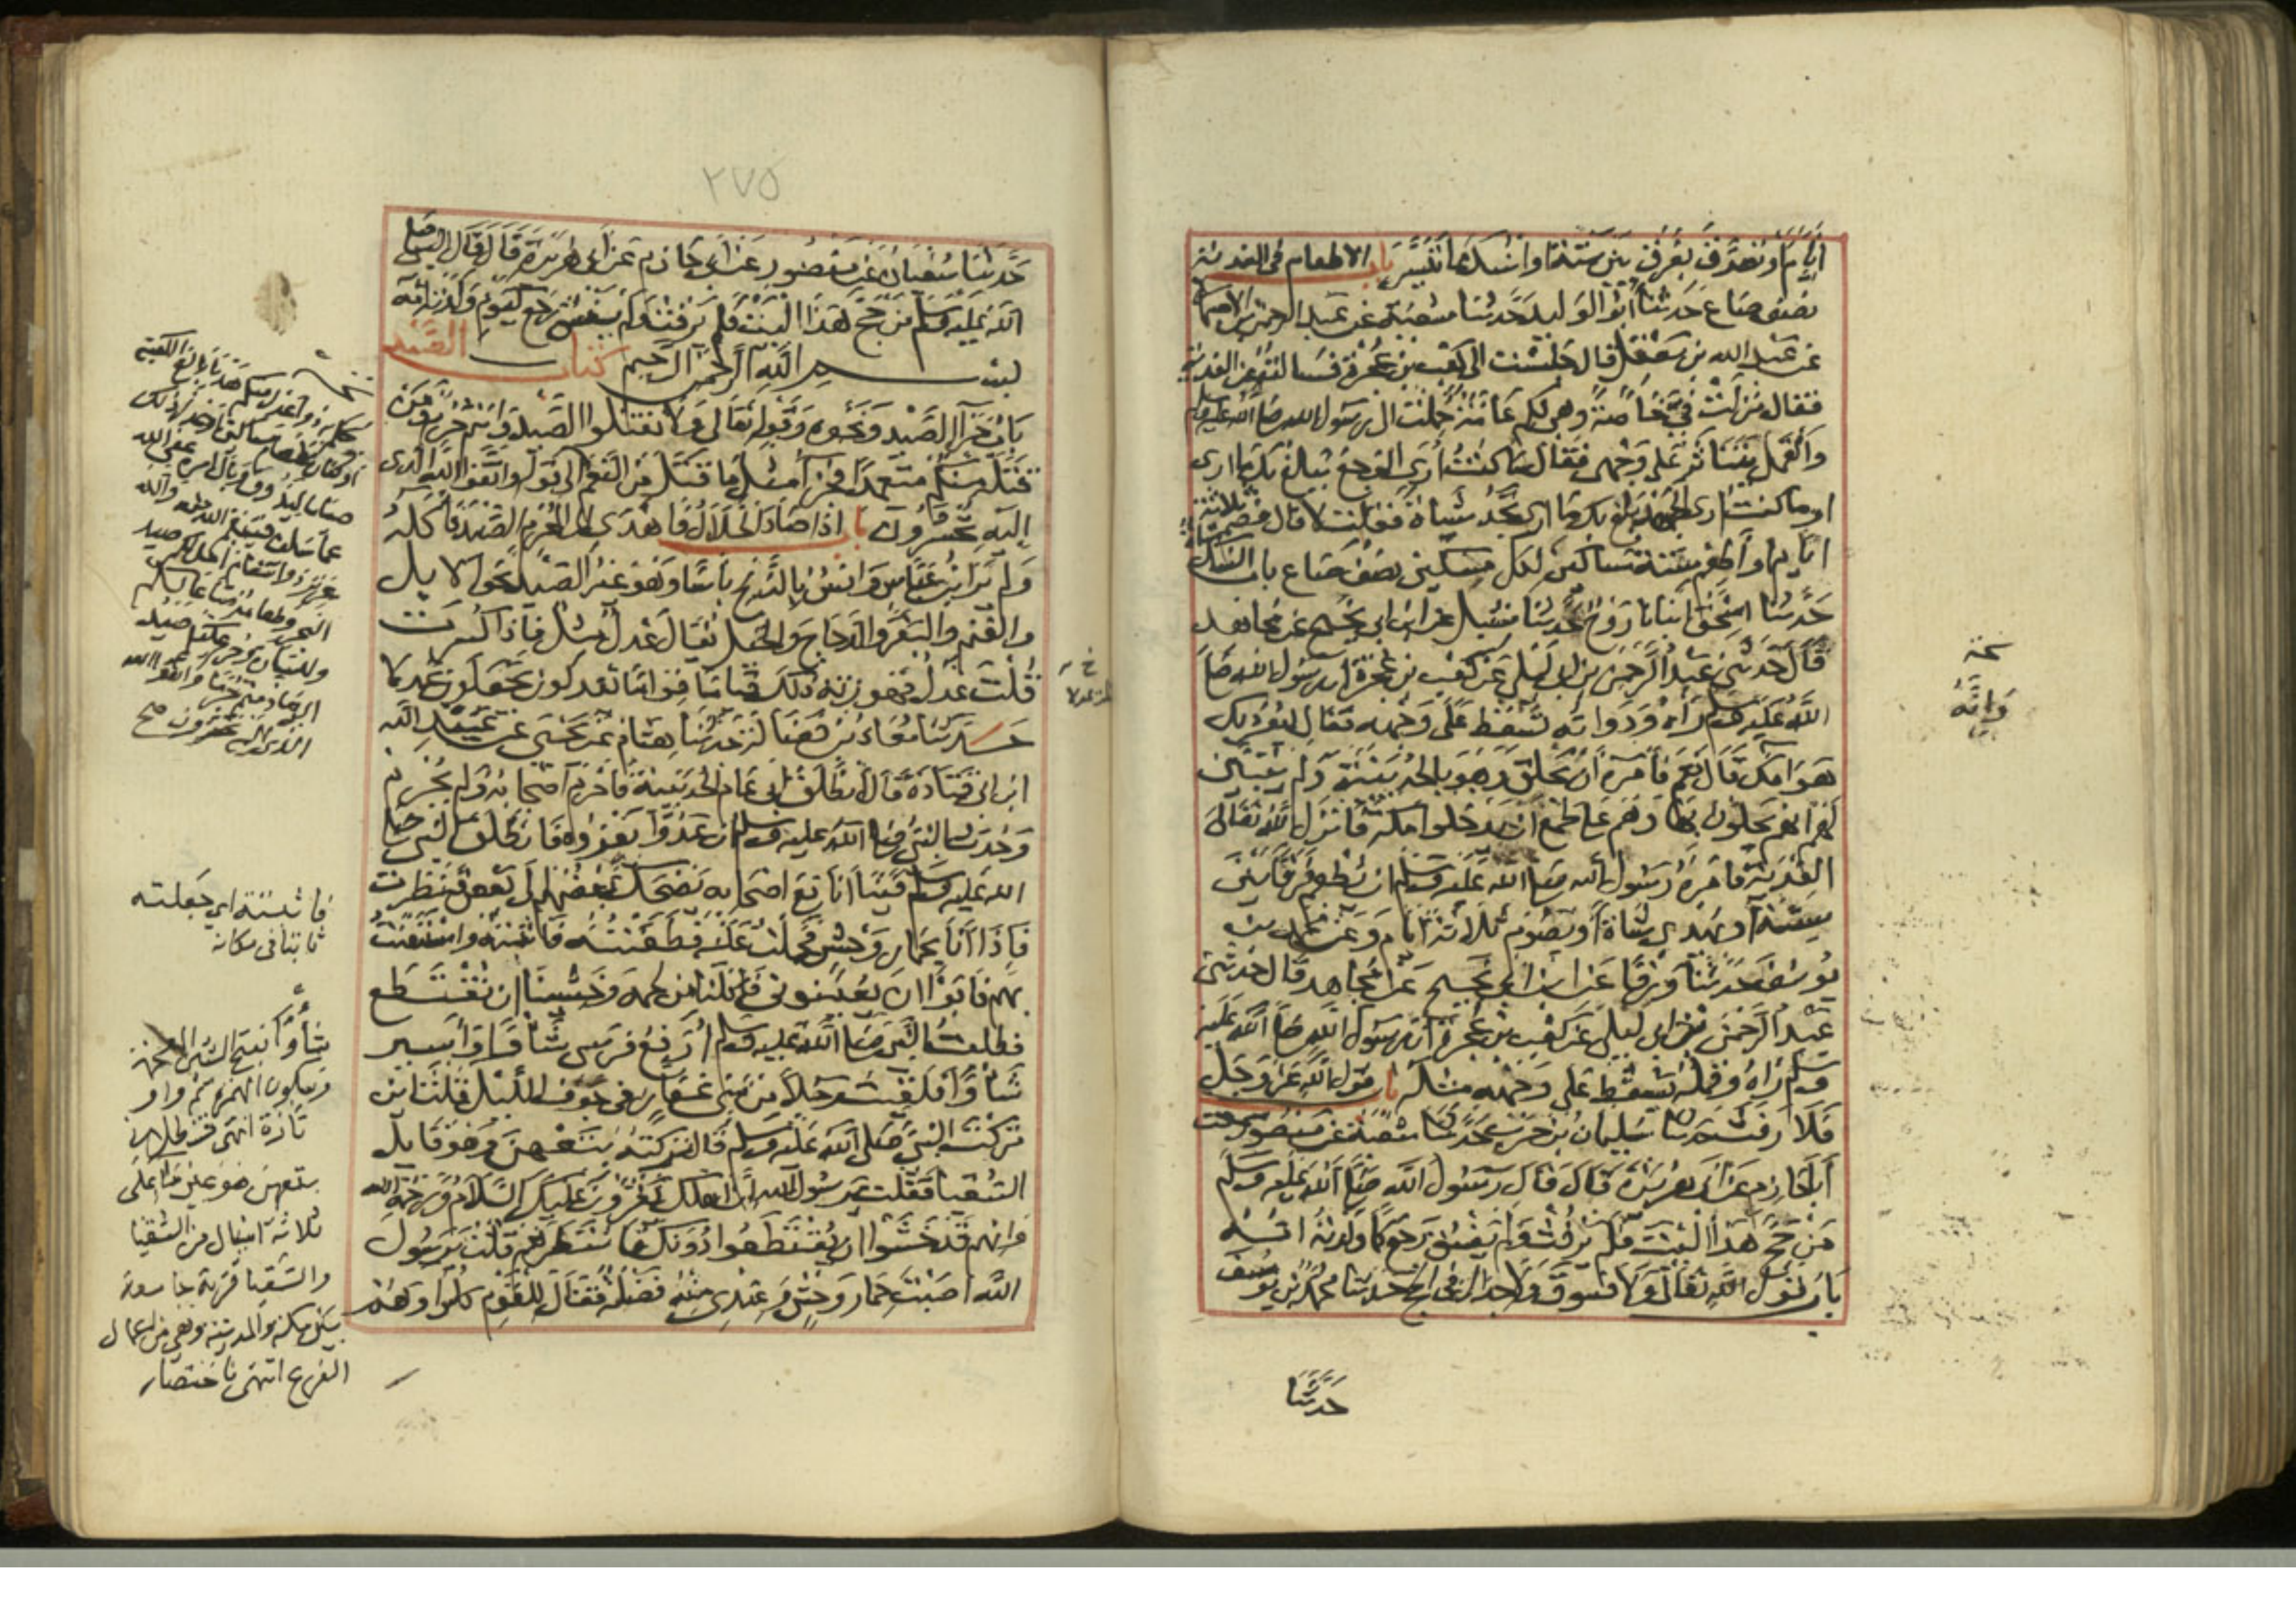 ايام او تصدق بفرق بين ستة او انسك ما تيسر باب الاطعام في الفدية
نصف صاع حدثنا ابو الوليد حدثنا شعبة عن عبد الرحمن بن الاصبهاني
عن عبد الله بن معقل قال جلست الى كعب بن عجرة فسالته عن الفدية
فقال نزلت في خاصة وهي لكم عامة حملت الى رسول الله صلى الله عليه وسلم
والقمل يتناثر على وجهي فقال ما كنت ارى الوجع بلغ بك ما ارى
او ما كنت ارى الجهد بلغ بك ما ارى تجد شاة فقلت لا قال فصم ثلاثة
ايام او اطعم ستة مساكين لكل مسكين نصف صاع باب النسك شاة
حدثنا اسحق انبانا روح حدثنا شبل عن ابن ابي نجيح عن مجاهد
قال حدثني عبد الرحمن بن ابي ليلى عن كعب بن عجرة ان رسول الله صلى
الله عليه وسلم راه ودوابه تسقط على وجهه فقال ايوذيك
هوامك قال نعم فامره ان يحلق وهو بالحديبية ولم يتبين
لهم انهم يحلون بها وهم على طمع ان يدخلوا مكة فانزل الله تعالى
الفدية فامره رسول الله صلى الله عليه وسلم ان يطعم فرقا بين
ستة او يهدي شاة او يصوم ثلاثة ايام وعن محمد بن
يوسف حدثنا ورقا عن ابن ابي نجيح عن مجاهد قال حدثني
عبد الرحمن بن ابي ليلى عن كعب بن عجرة ان رسول الله صلى الله عليه
وسلم راه وقمله يسقط على وجهه مثله باب قول الله عز وجل
فلا رفث حدثنا سليمان بن حرب حدثنا شعبة عن منصور سمعت
ابا حازم عن ابي هريرة قال قال رسول الله صلى الله عليه وسلم
من حج هذا البيت فلم يرفث ولم يفسق رجع كما ولدته امه
باب قول الله تعالى ولا فسوق ولا جدال في الحج حدثنا محمد بن يوسف
حدثنا
نسخة
وانه
٢٧٥
حدثنا سفيان عن منصور عن ابي حازم عن ابي هريرة قال قال النبي صلى
الله عليه وسلم من حج هذا البيت فلم يرفث ولم يفسق رجع كيوم ولدته امه
بسم الله الرحمن الرحيم كتاب الصيد
باب جزا الصيد ونحوه وقوله تعالى ولا تقتلوا الصيد وانتم حرم ومن
قتله منكم متعمدا فجزا مثل ما قتل من النعم الى قوله واتقوا الله الذي
اليه تحشرون باب اذا صاد الحلال فاهدى الى المحرم الصيد فاكله
ولم ير ابن عباس وانس بالذبح باسا وهو غير الصيد نحو الابل
والغنم والبقر والدجاج والخيل يقال عدل مثل فاذا كسرت
قلت عدل فهو زنة ذلك قياما قواما يعدلون يجعلون عدلا
حدثنا معاذ بن فضالة حدثنا هشام عن يحيى عن عبد الله
ابن ابي قتادة قال انطلق ابي عام الحديبية فاحرم اصحابه ولم يحرم
وحدث النبي صلى الله عليه وسلم ان عدوا يغزوه فانطلق النبي صلى
الله عليه وسلم فبينا انا مع اصحابه يضحك بعضهم الى بعض فنظرت
فاذا انا بحمار وحش فحملت عليه فطعنته فاثبته واستعنت
بهم فابوا ان يعينوني فاكلنا من لحمه وخشينا ان نقتطع
فطلبت النبي صلى الله عليه وسلم ارفع فرسي شاوا واسير
شاوا فلقيت رجلا من بني غفار في جوف الليل قلت اين
تركت النبي صلى الله عليه وسلم قال تركته بتعهن وهو قايل
السقيا فقلت يرسول الله ان اهلك يقرؤن عليك السلام ورحمة الله
وانهم قد خشوا ان يقتطعوا دونك فانتظرهم قلت يرسول
الله اصبت حمار وحش وعندي منه فاضلة فقال للقوم كلوا وهم
فاثبته اي جعلته
ثابتا في مكانه
شأوا بفتح الشين المعجمة
وسكون الهمزة ثم واو
بتعهن هو عين ما على
ثلاثة اميال من السقيا
والسقيا قرية جامعة
بين مكة والمدينة وهي من اعمال
الفرع انتهى باختصار